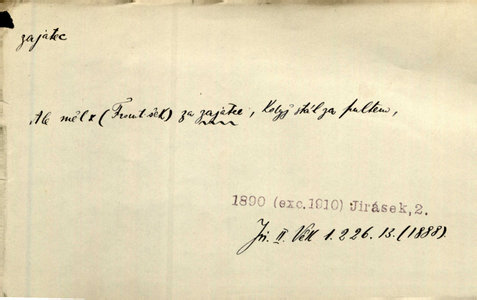 zajatec
Ale měl x (František) za zajatce, když stál za pultem,
1890 (exc.1910) Jirásek,2.
Jir. II. Věk 1. 226. B. (1888)